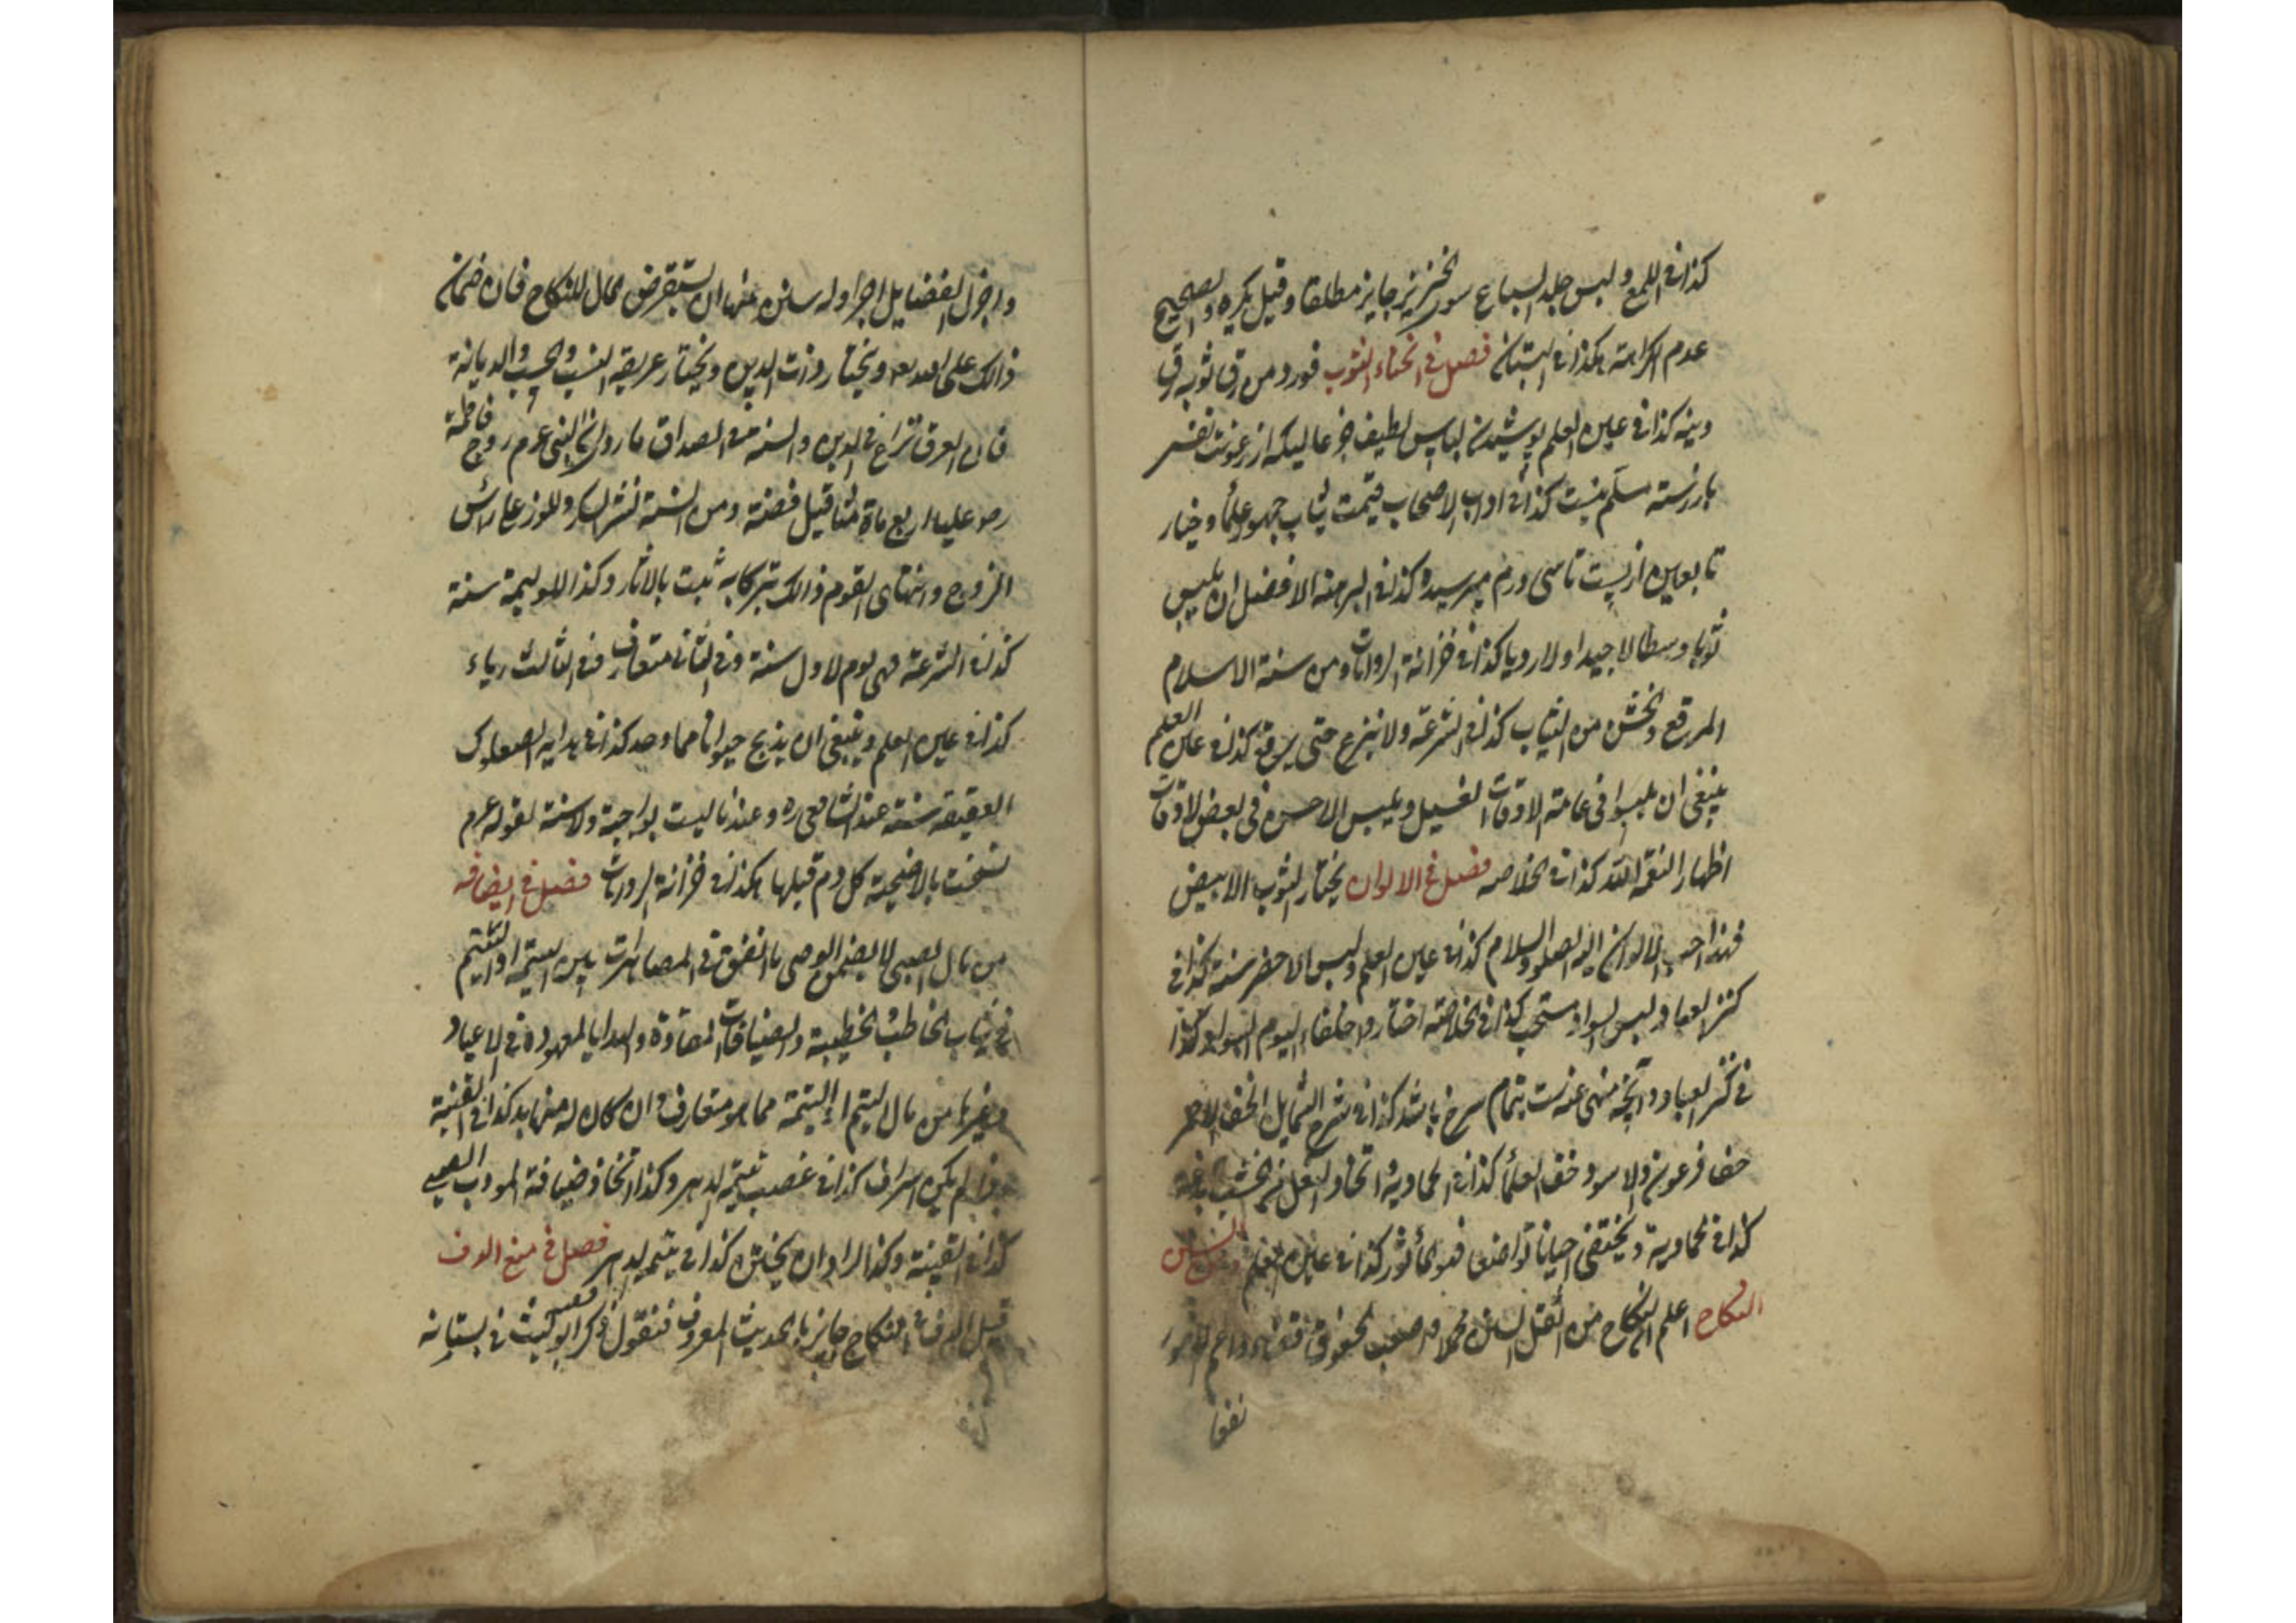 كذا فى اللمع ولبس جلد السباع سور الخنزير جايز مطلقا وقيل يكره والصحيح
عدم الكراهة هكذا فى البستان فصل فى انحاء الثوب فورد من رق ثوبه رق
دينه كذا فى عين العلم پوشيدن لباس لطيف جز عاليكه از رعونت نفس
باز رسته مسلم نيست كذا فى اداب الاصحاب قيمت ثياب جمهور علما وخيار
تابعين از بيست تا سى درم ميرسيد وكذا فى البرهنه الافضل ان يلبس
ثوبا وسطا لا جيدا ولا رديا كذا فى خزانة الروايات ومن سنة الاسلام
المرقع والخشن من الثياب كذا فى الشرعة ولا ينزع حتى يرقع كذا فى عين العلم
ينبغى ان يلبسوا فى عامة الاوقات الغسيل ويلبس الاحسن فى بعض الاوقات
اظهارا لنعمة الله كذا فى الخلاصه فصل فى الالوان يختار الثوب الابيض
فهذا احب الالوان اليه الصلوة والسلام كذا فى عين العلم ولبس الاخضر سنة كذا فى
كنز العباد ولبس السواد مستحب كذا فى الخلاصة اختاروا خلفاء اليوم السواد كذا
فى كنز العباد وآنچه منهى عنه است بتمام سرخ باشد كذا فى شرح الشمايل الخف الاحمر
خف فرعون والاسود خف العلما كذا فى الحاوية واتخاذ النعل من الخشب بدعة
كذا فى الحاوية ويحتفى احيانا تواضعا فهو المأثور كذا فى عين العلم
النكاح اعلم ان النكاح من اثقل السنن محملا واصعب الحقوق
نفقا
واجزل الفضايل اجرا وله سنن منها ان يستقرض بمال للنكاح فان ضمان
ذالك على الله ويختار ذات الدين ويختار عريقة النسب والحسب والديانة
فان العرق نزاع فى الدين والسنة فى الصداق ما روى ان النبى عم زوج فاطمة
رض عليا اربع ماة مثاقيل فضة ومن السنة نثر السكر واللوز على رأس
الزوج وانتهاى القوم ذالك تبركا به ثبت بالاثار وكذا الوليمة سنة
كذا فى الشرعة فهى يوم الاول سنة وفى الثانى متعارف وفى الثالث رياء
كذا فى عين العلم وينبغى ان يذبح حيوانا مما وجد كذا فى بداية الصعلوك
العقيقة سنة عند الشافعى ره وعندنا ليست بواجبة ولا سنة لقوله عم
نسخت بالاضحية كل دم قبلها هكذا فى خزانة الروايات فصل فى الضيافه
من مال الصبى لا يضمن الوصى ما انفق فى المصاهرات بين اليتيمة او اليتيم
فى ثياب الخاطب والخطيبة والضيافات المعتادة والهدايا المعهودة فى الاعياد
وغيرها من مال اليتيم او اليتيمة مما هو متعارف وان كان له منها بد كذا فى القنية
لم يكن اسراف كذا فى غصب يتيمة الدهر وكذا اتخاذ ضيافة المودب الصبى
كذا فى القنية وكذا اراد ان يختن كذا فى يتيمة الدهر فصل فى منع الدف
قيل الدف فى النكاح جايز بالحديث المعروف فنقول ذكر ابو ليث فى بستانه